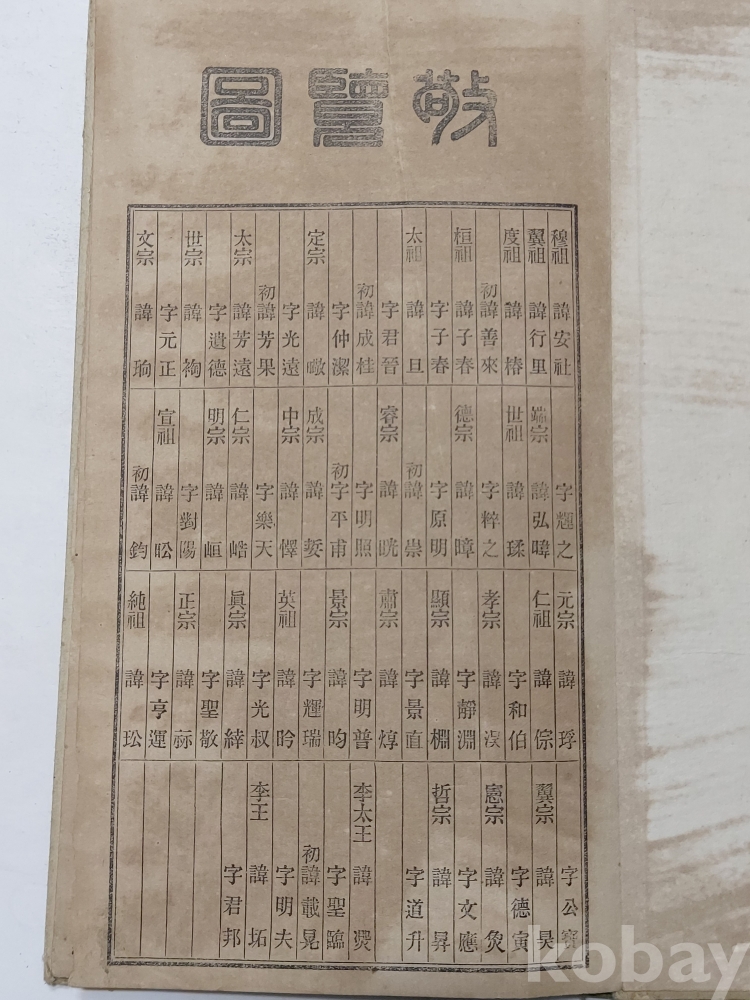 敬覽圖
穆祖 諱安社
翼祖 諱行里
度祖 諱椿
初諱善來
桓祖 諱子春
字子春
太祖 諱旦
字君晉
初諱成桂
字仲潔
定宗 諱曔
字光遠
初諱芳果
太宗 諱芳遠
字遺德
世宗 諱祹
字元正
文宗 諱珦
字輝之
端宗 諱弘暐
世祖 諱瑈
字粹之
德宗 諱暲
字原明
初諱崇
睿宗 諱晄
字明照
初字平甫
成宗 諱娎
中宗 諱懌
字樂天
仁宗 諱峼
明宗 諱峘
字對陽
宣祖 諱昖
初諱鈞
元宗 諱琈
仁祖 諱倧
字和伯
孝宗 諱淏
字靜淵
顯宗 諱棩
字景直
肅宗 諱焞
字明普
景宗 諱昀
字輝瑞
英祖 諱昑
字光叔
眞宗 諱緈
字聖敬
正宗 諱祘
字亨運
純祖 諱玜
字公寶
翼宗 諱旲
字德寅
憲宗 諱奐
字文應
哲宗 諱昪
字道升
李太王 諱㷩
字聖臨
初諱載晃
字明夫
李王 諱坧
字君邦
kobay